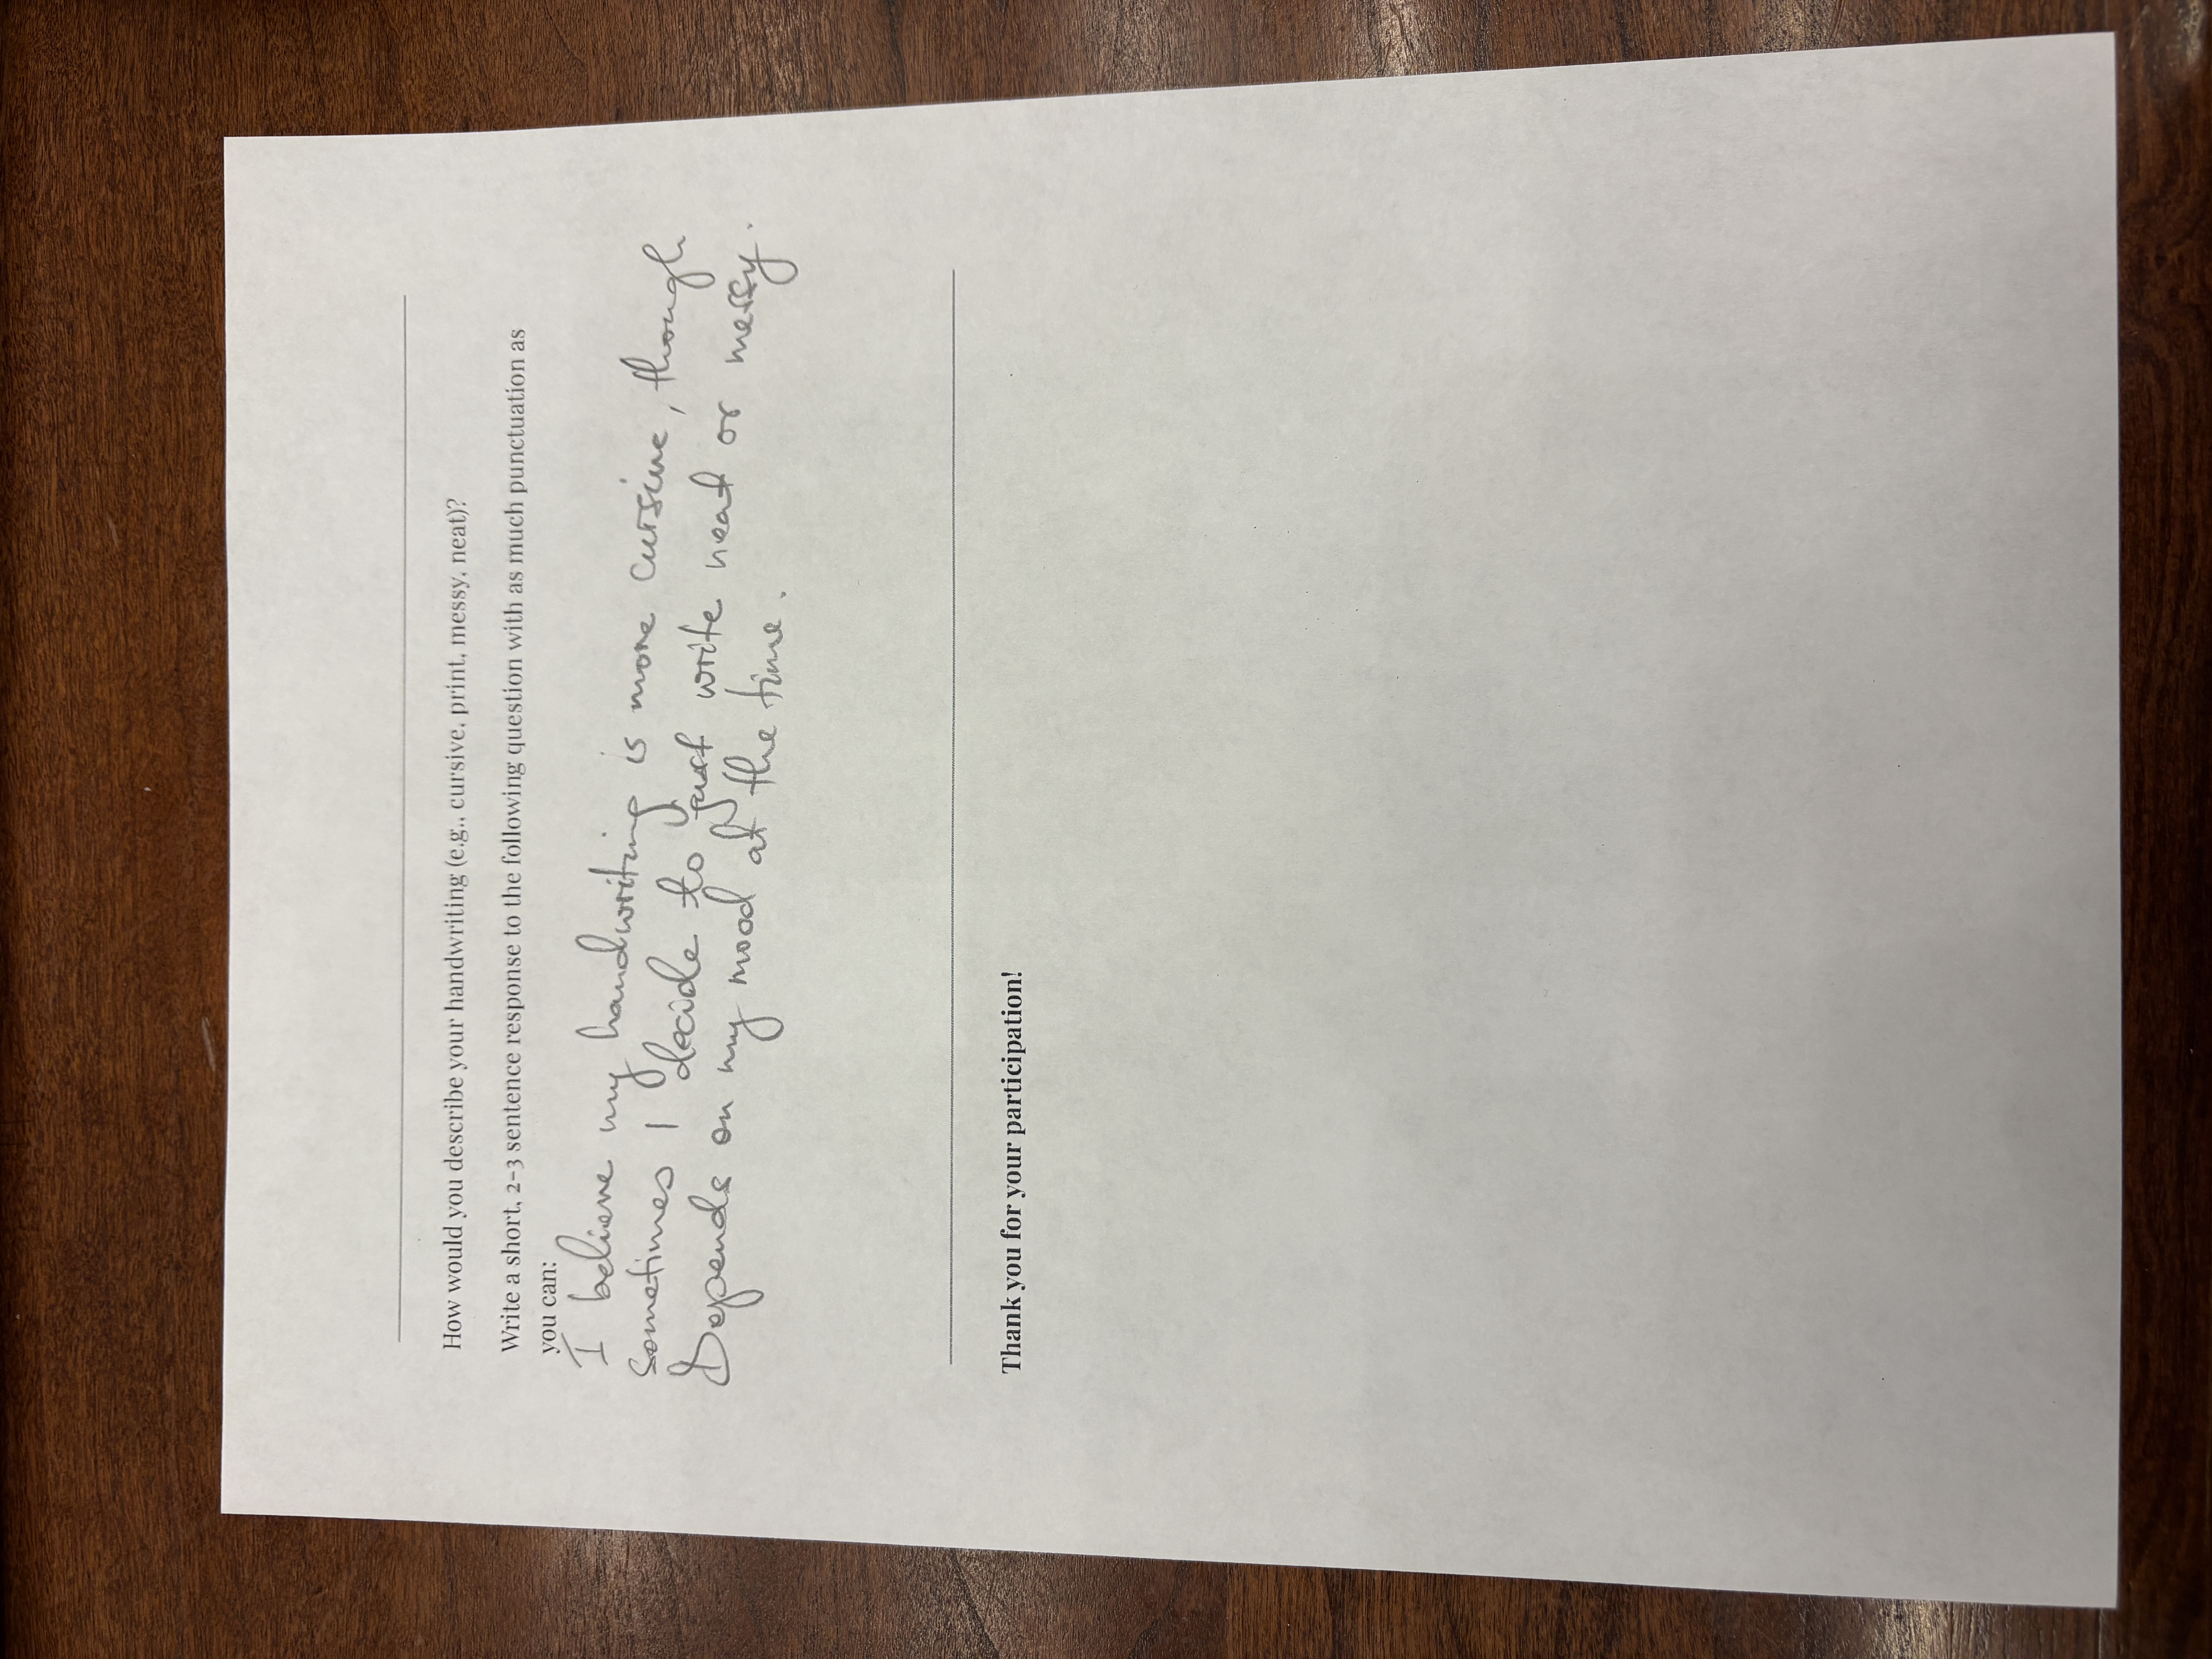 How would you describe your handwriting (e.g., cursive, print, messy, neat)?
Write a short, 2-3 sentence response to the following question with as much punctuation as
you can:
I believe my handwriting is more cursive, though
sometimes I decide to just write neat or messy.
Depends on my mood at the time.
Thank you for your participation!